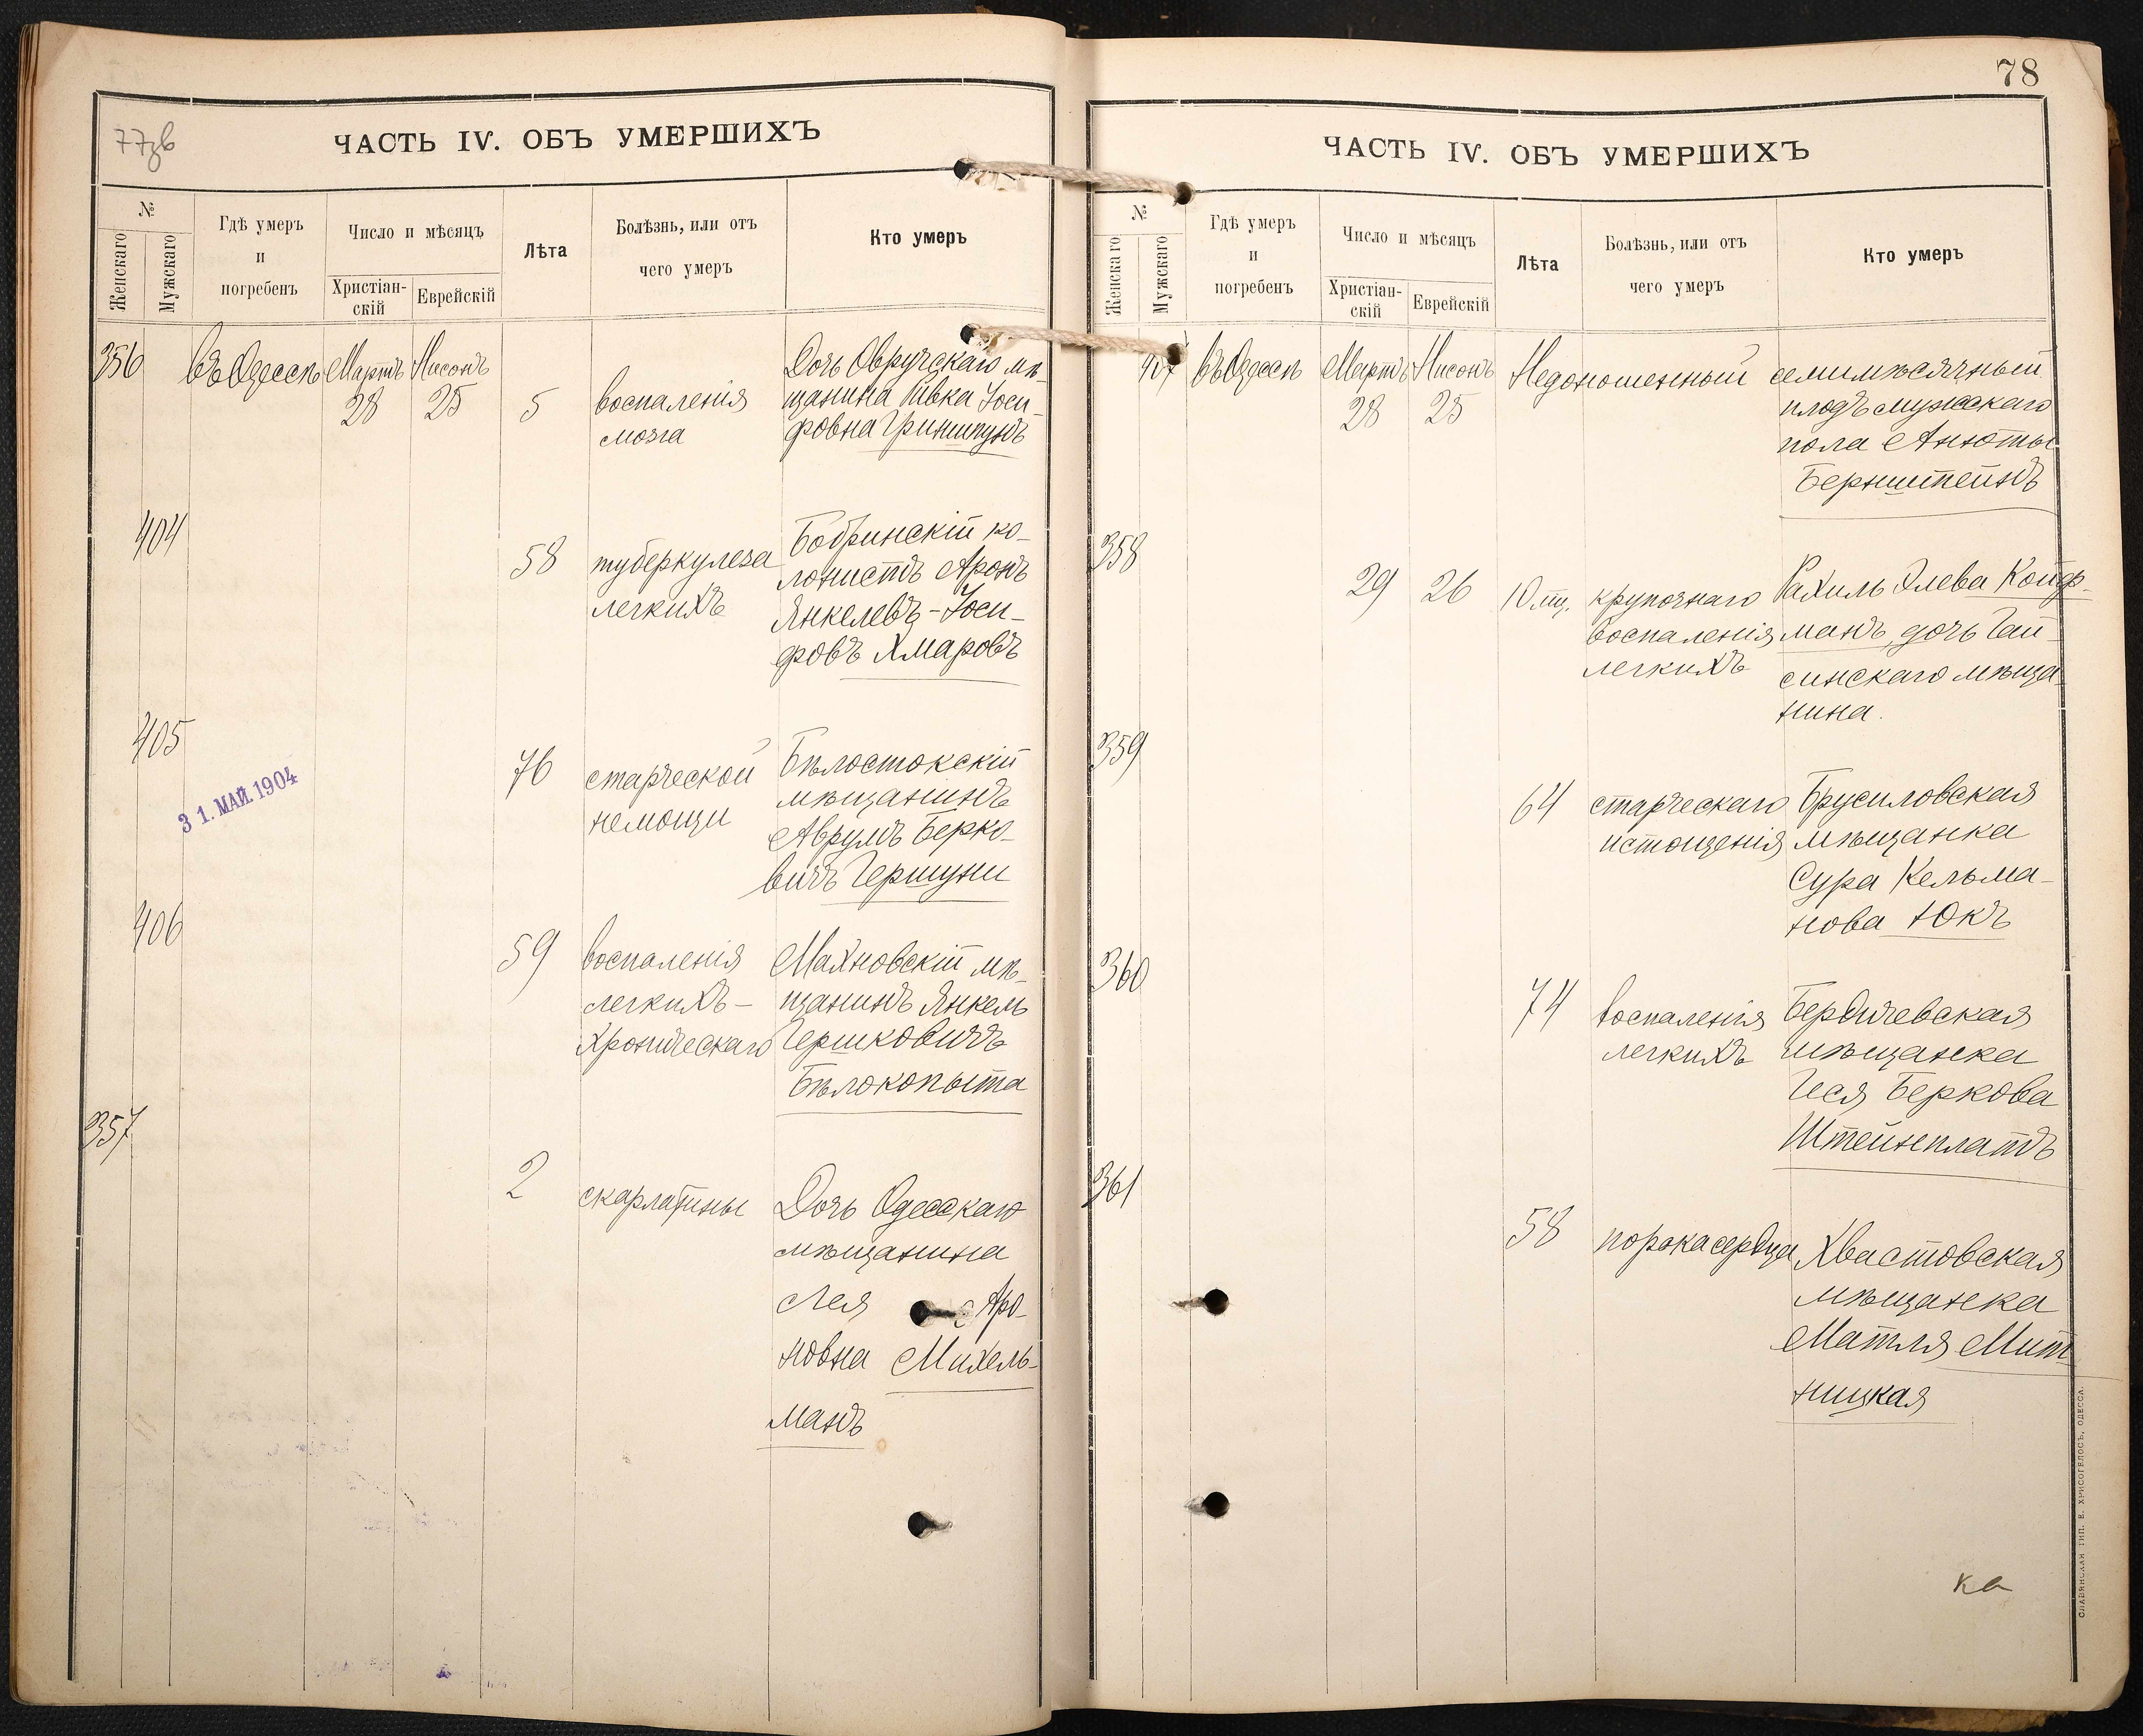 77зв
ЧАСТЬ IV. ОБЪ УМЕРШИХЪ
№
Женскаго
Мужскаго
Гдѣ умеръ
и
погребенъ
Число и мѣсяцъ
Христіан-
скій
Еврейскій
Лѣта
Болѣзнь, или отъ
чего умеръ
Кто умеръ
356
въ Одессѣ
Мартъ
28
Нисонъ
25
5
воспаленія
мозга
Дочь Овручскаго мѣ-
щанина Ривка Іоси-
фовна Гриншпунъ
404
58
туберкулеза
легкихъ
Бобринскій ко-
лонистъ Аронъ
Янкелевъ-Іоси-
фовъ Хмаровъ
405
31. МАЙ. 1904
76
старческой
немощи
Бѣлостокскій
мѣщанинъ
Аврумъ Берко-
вичъ Гершуни
406
59
воспаленія
легкихъ-
хроническаго
Махновскій мѣ-
щанинъ Янкель
Гершковичъ
Бѣлокопыта
357
2
скарлатины
Дочь Одесскаго
мѣщанина
Лея Аро-
новна Михель-
манъ
78
ЧАСТЬ IV. ОБЪ УМЕРШИХЪ
№
Женскаго
Мужскаго
Гдѣ умеръ
и
погребенъ
Число и мѣсяцъ
Христіан-
скій
Еврейскій
Лѣта
Болѣзнь, или отъ
чего умеръ
Кто умеръ
407
въ Одессѣ
Мартъ
28
Нисонъ
25
Недоношенный
семимѣсячный
плодъ мужскаго
пола Анюты
Бернштейнъ
358
29
26
10 мц.
крупознаго
воспаленія
легкихъ
Рахиль Элева Койф-
манъ, дочь Гай-
синскаго мѣща-
нина.
359
64
старческаго
истощенія
Брусиловская
мѣщанка
Сура Кельма-
нова Юкъ
360
74
воспаленія
легкихъ
Бердичевская
мѣщанка
Ися Беркова
Штейнплатъ
361
58
порока сердца
Хвастовская
мѣщанка
Матля Мит-
ницкая
ка
СЛАВЯНСКАЯ ТИП. Е. ХРИСОГЕЛОСЪ, ОДЕССА.